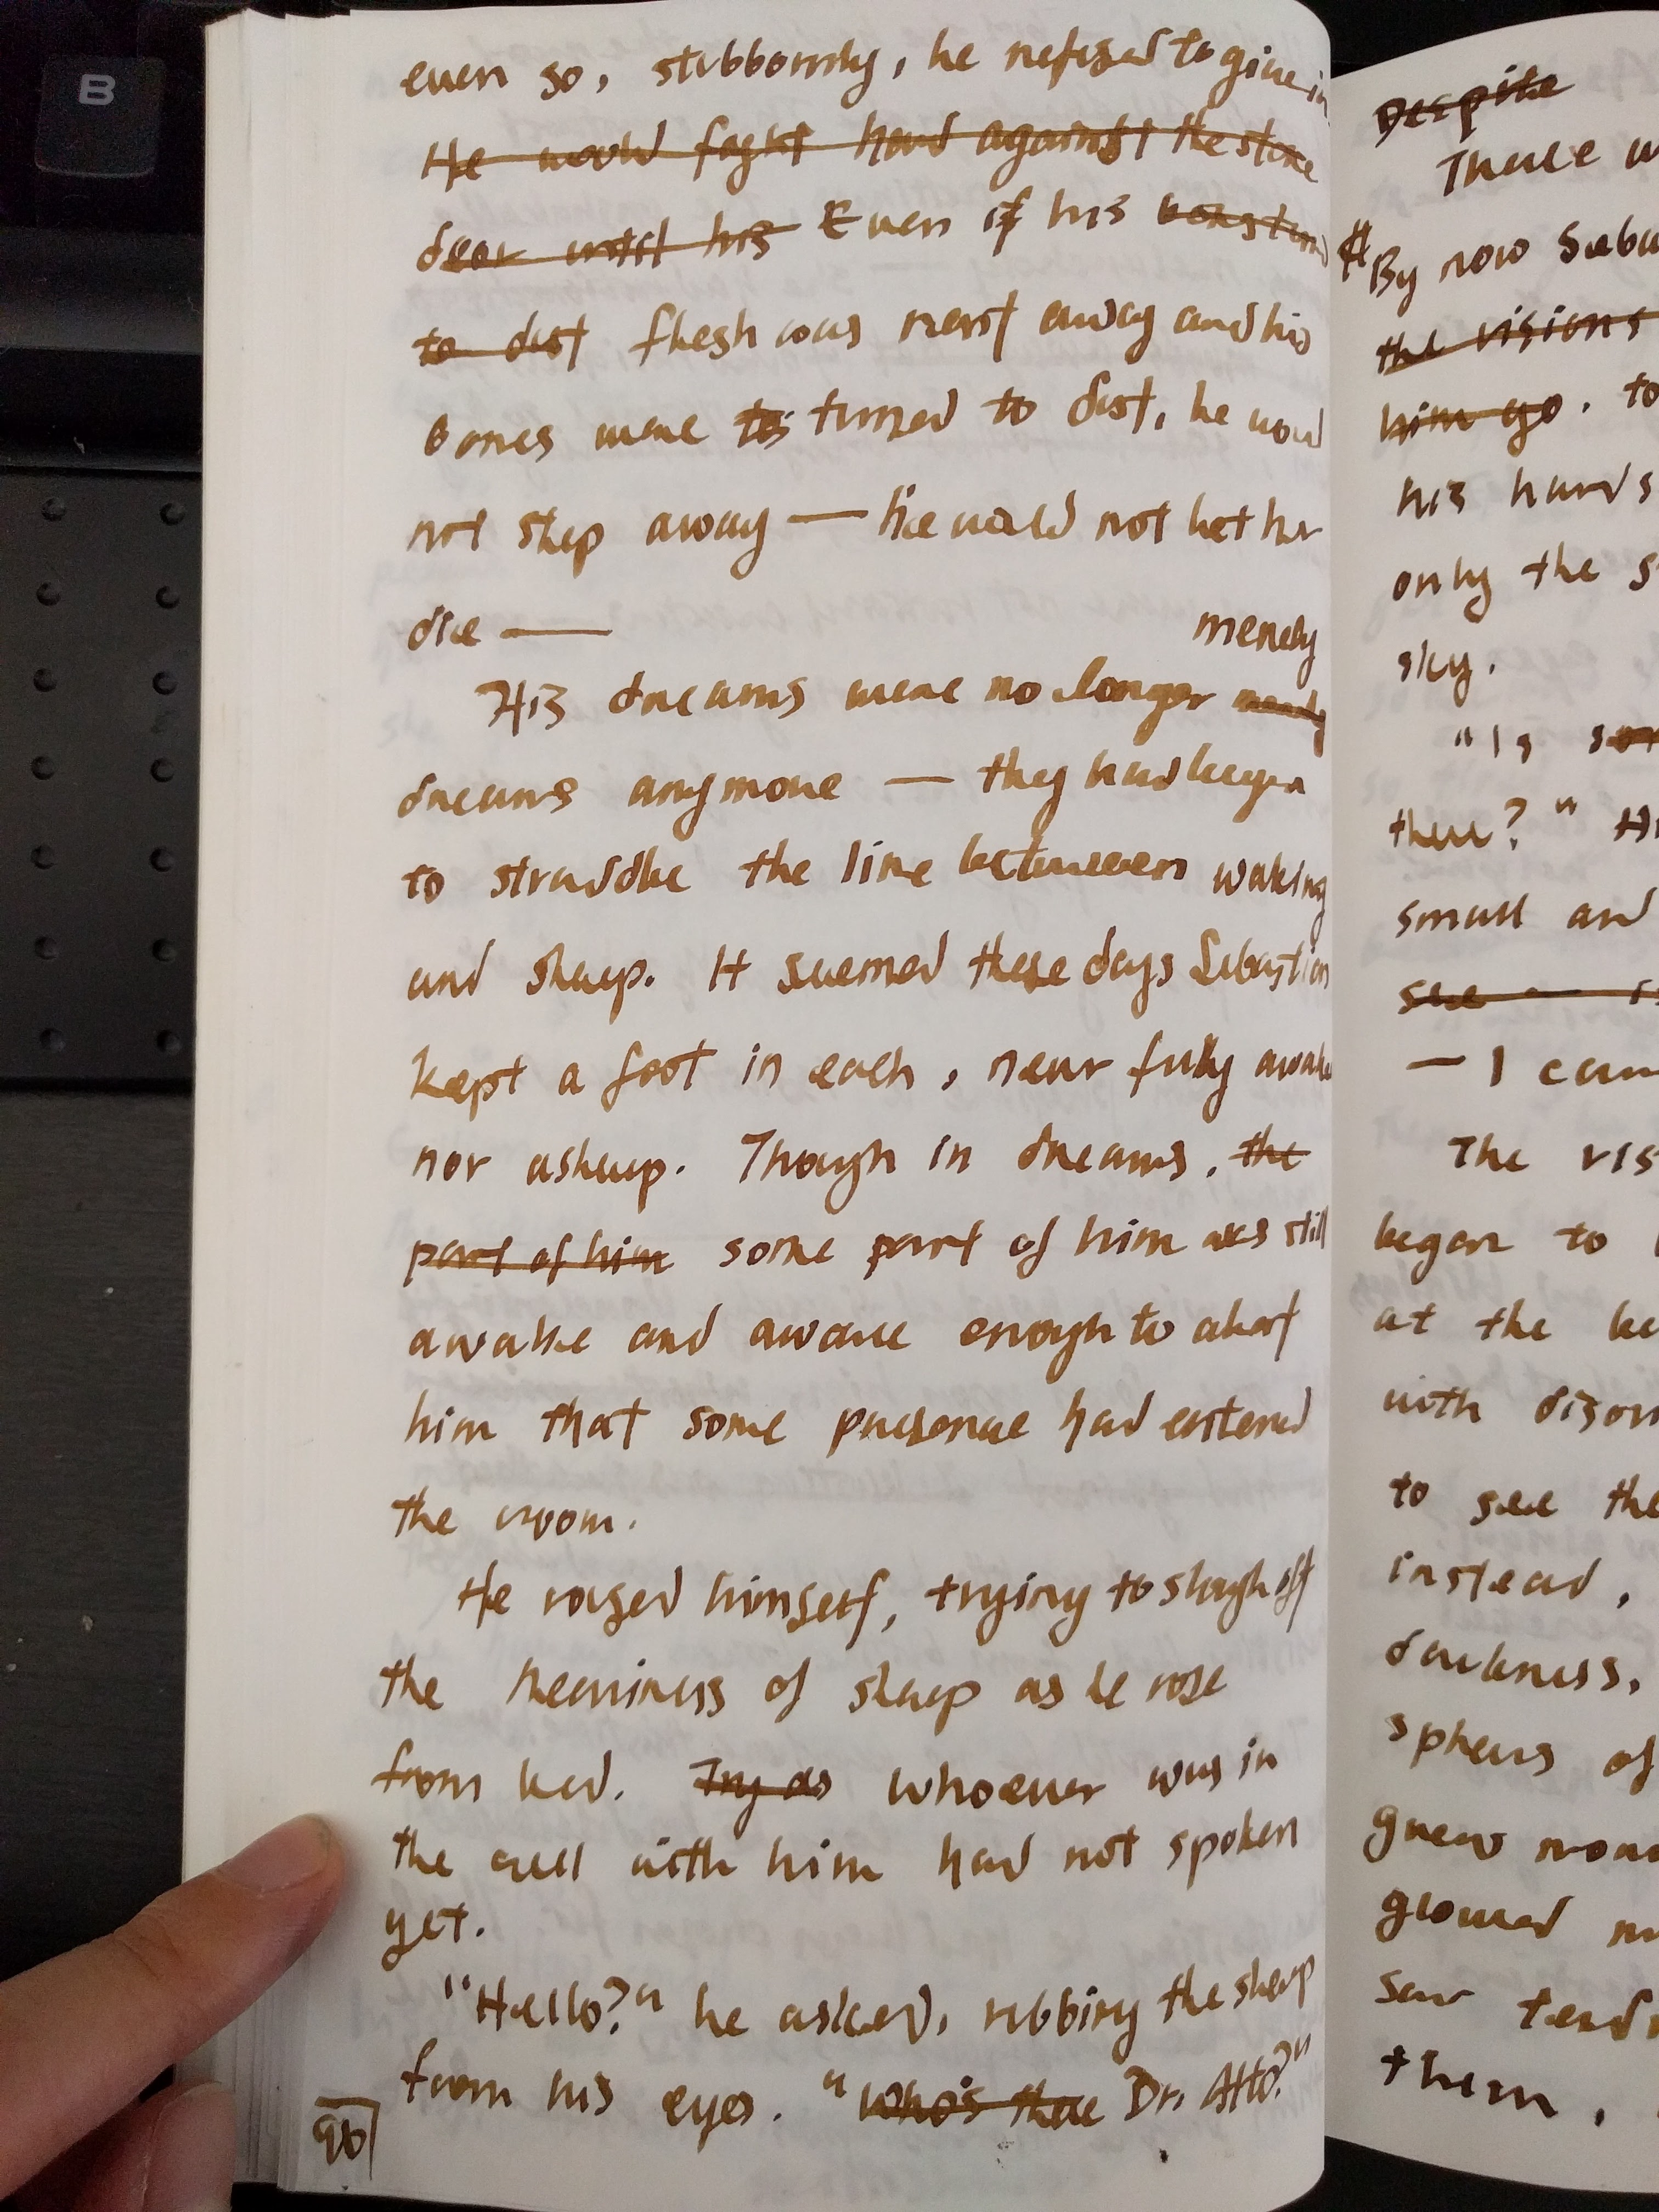 B
even so, stubbornly, he refused to give in
He would fight hard against the stone
door until his Even if his bones turned
to dust flesh was rent away and his
bones were to turned to dust, he would
not step away — he would not let her
die —
merely
His dreams were no longer merely
dreams anymore — they had begun
to straddle the line between waking
and sleep. It seemed these days Sebastian
kept a foot in each, near fully awake
nor asleep. Though in dreams, the
part of him some part of him was still
awake and aware enough to alert
him that some presence had entered
the room.
He roused himself, trying to slough off
the heaviness of sleep as he rose
from bed. Try as whoever was in
the cell with him had not spoken
yet.
"Hello?" he asked, rubbing the sleep
from his eyes. "Who's there Dr. Atto?"
96
Despite
There w
By now Seba
the visions
him go. to
his hands
only the s
sky.
"Is
there?" Hi
small and
see —
— I can
The vis
began to
at the be
with
to see the
instead,
darkness,
spheres of
grew mo
glowed m
saw tend
them,